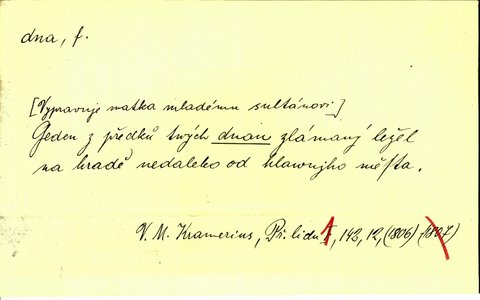 dna, f.
[Vypravuje matka mladému sultánovi]
Geden z předků twých dnau zlámaný ležel
na hradě nedaleko od hlawnjho mě∫ta.
V. M. Kramerius, Př. lidu 1, 142, 12, (1806)